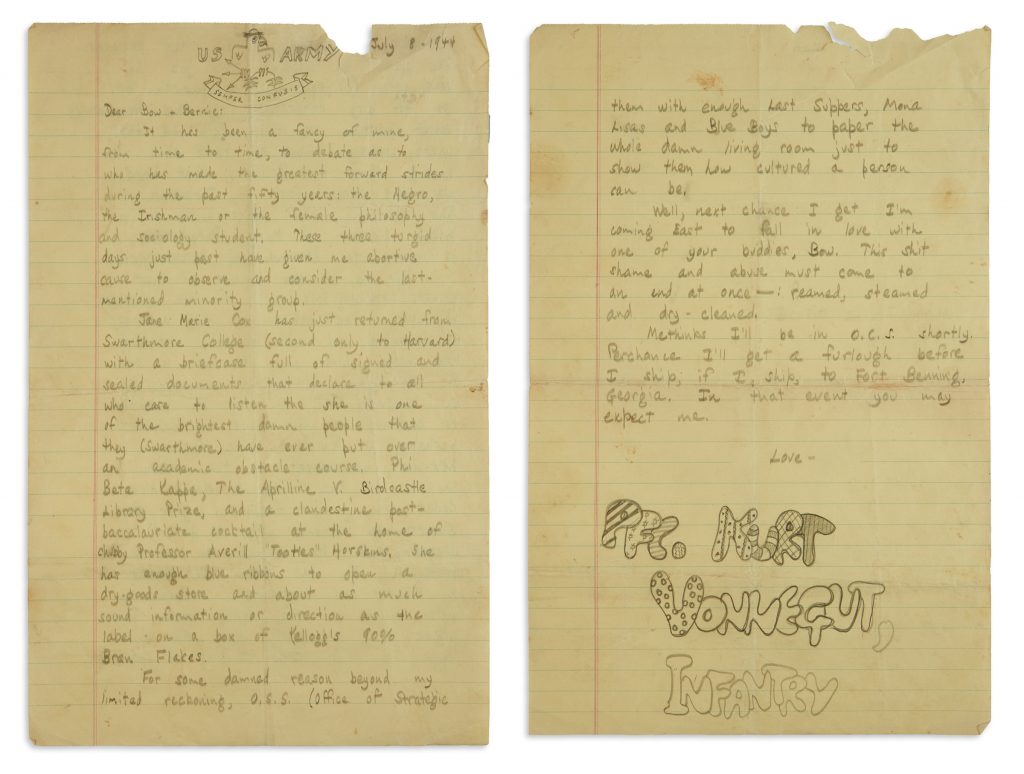 US ARMY
July 8 - 1944
SEMPER CONFUSIS
Dear Bow + Bernie:
It has been a fancy of mine,
from time to time, to debate as to
who has made the greatest forward strides
during the past fifty years: the Negro,
the Irishman or the female philosophy
and sociology student. These three turgid
days just past have given me abortive
cause to observe and consider the last-
mentioned minority group.
Jane Marie Cox has just returned from
Swarthmore College (second only to Harvard)
with a briefcase full of signed and
sealed documents that declare to all
who care to listen the she is one
of the brightest damn people that
they (Swarthmore) have ever put over
an academic obstacle course. Phi
Beta Kappa, The Aprilline V. Birdcastle
Library Prize, and a clandestine post-
baccalauriate cocktail at the home of
chubby Professor Averill "Tootles" Horskins. She
has enough blue ribbons to open a
dry-goods store and about as much
sound information or direction as the
label on a box of Kellogg's 90%
Bran Flakes.
For some damned reason beyond my
limited reckoning, O.S.S. (Office of Strategic
them with enough Last Suppers, Mona
Lisas and Blue Boys to paper the
whole damn living room just to
show them how cultured a person
can be.
Well, next chance I get I'm
coming East to fall in love with
one of your buddies, Bow. This shit
shame and abuse must come to
an end at once —: reamed, steamed
and dry-cleaned.
Methinks I'll be in O.C.S. shortly.
Perchance I'll get a furlough before
I ship, if I ship, to Fort Benning,
Georgia. In that event you may
expect me.
Love -
PFC. KURT
VONNEGUT,
INFANTRY